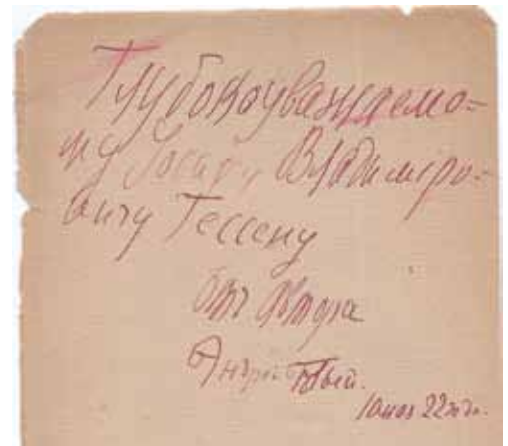 Глубокоуважаемо=
му Іосифу Владимиро=
вичу Гессену
отъ автора
Андрей Бѣлый.
22 го г.